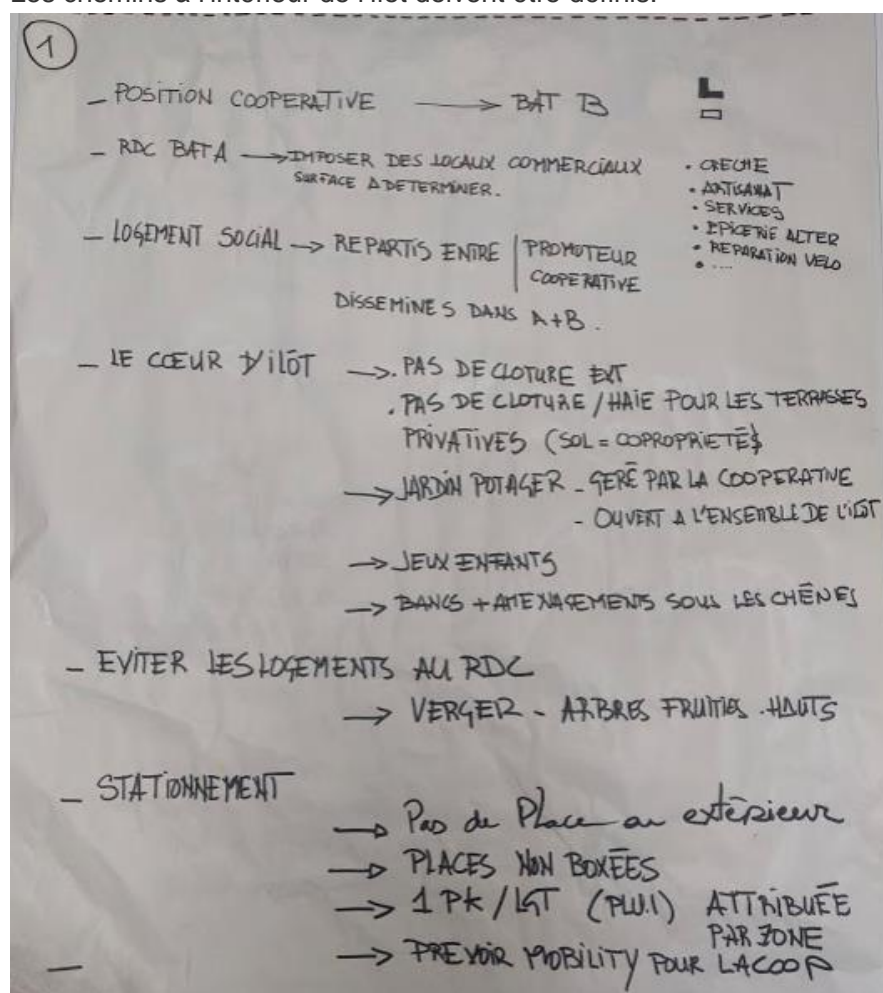 Les chemins à l'intérieur de l'îlot doivent être définis.
1
- POSITION COOPERATIVE → BAT B
- RDC BAT A → IMPOSER DES LOCAUX COMMERCIAUX
SURFACE A DETERMINER.
• CRECHE
• ARTISANAT
• SERVICES
• EPICERIE ALTER
• REPARATION VELO
• ....
- LOGEMENT SOCIAL → REPARTIS ENTRE | PROMOTEUR
COOPERATIVE
DISSEMINES DANS A+B.
- LE CŒUR D'ILÔT → . PAS DE CLOTURE EXT
. PAS DE CLOTURE / HAIE POUR LES TERRASSES
PRIVATIVES (SOL = COPROPRIETÉ)
→ JARDIN POTAGER - GERÉ PAR LA COOPERATIVE
- OUVERT A L'ENSEMBLE DE L'ILOT
→ JEUX ENFANTS
→ BANCS + AMENAGEMENTS SOUS LES CHÊNES
- EVITER LES LOGEMENTS AU RDC
→ VERGER - ARBRES FRUITIES . HAUTS
- STATIONNEMENT
→ Pas de Place en extérieur
→ PLACES NON BOXÉES
→ 1 PK / LGT (PLU.I) ATTRIBUÉE
PAR ZONE
→ PREVOIR MOBILITY POUR LA COOP
-